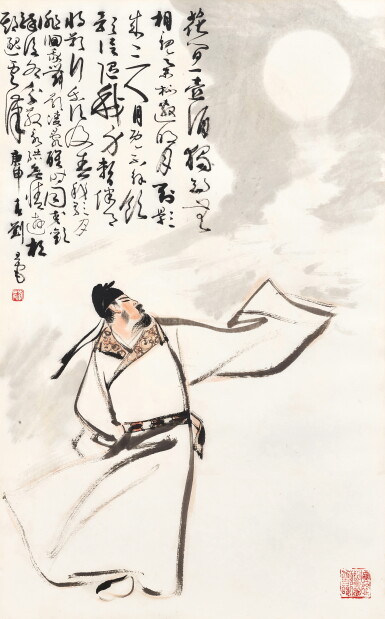 花间一壶酒独酌无
相亲举杯邀明月对影
成三人月既不解饮
影徒随我身暂伴月
将影行乐须及春我歌月
徘徊我舞影凌乱醒时同交欢
醉后各分散永结无情游相
期邈云汉
庚申